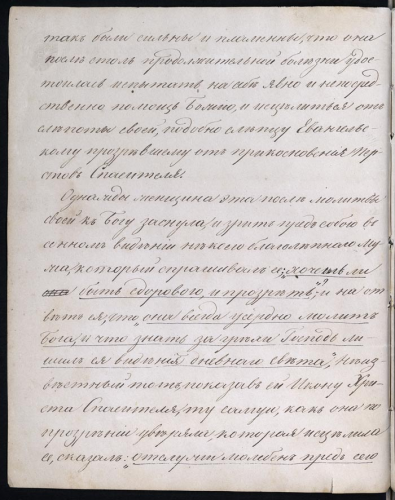 такъ были сильны и пламенны, что она
послѣ столь продолжительной болѣзни удос-
тоилась испытать на себѣ явно и непосред-
ственно помощь Божію, и исцѣлиться отъ
слѣпоты своей, подобно слѣпцу Евангельс-
кому прозрѣвшему отъ прикосновенія пер-
стовъ Спасителя.
Однажды женщина эта послѣ молитвы
своей къ Богу заснула, и зритъ предъ собою въ
сонномъ видѣніи нѣкоего благолѣпнаго му-
жа, который спрашивалъ ее: „хочешь ли
быть здоровою и прозрѣть?“ и на от-
вѣтъ ея, что „она всегда усердно молитъ
Бога, и что знать за грѣхи Господь ли-
шилъ ея видѣнія дневнаго свѣта“, Неиз-
вѣстный тотъ показавъ ей Икону Хри-
ста Спасителя, ту самую, какъ она по
прозрѣніи увѣряла которая исцѣлила
ее, сказалъ: „отслужи молебенъ предъ сею